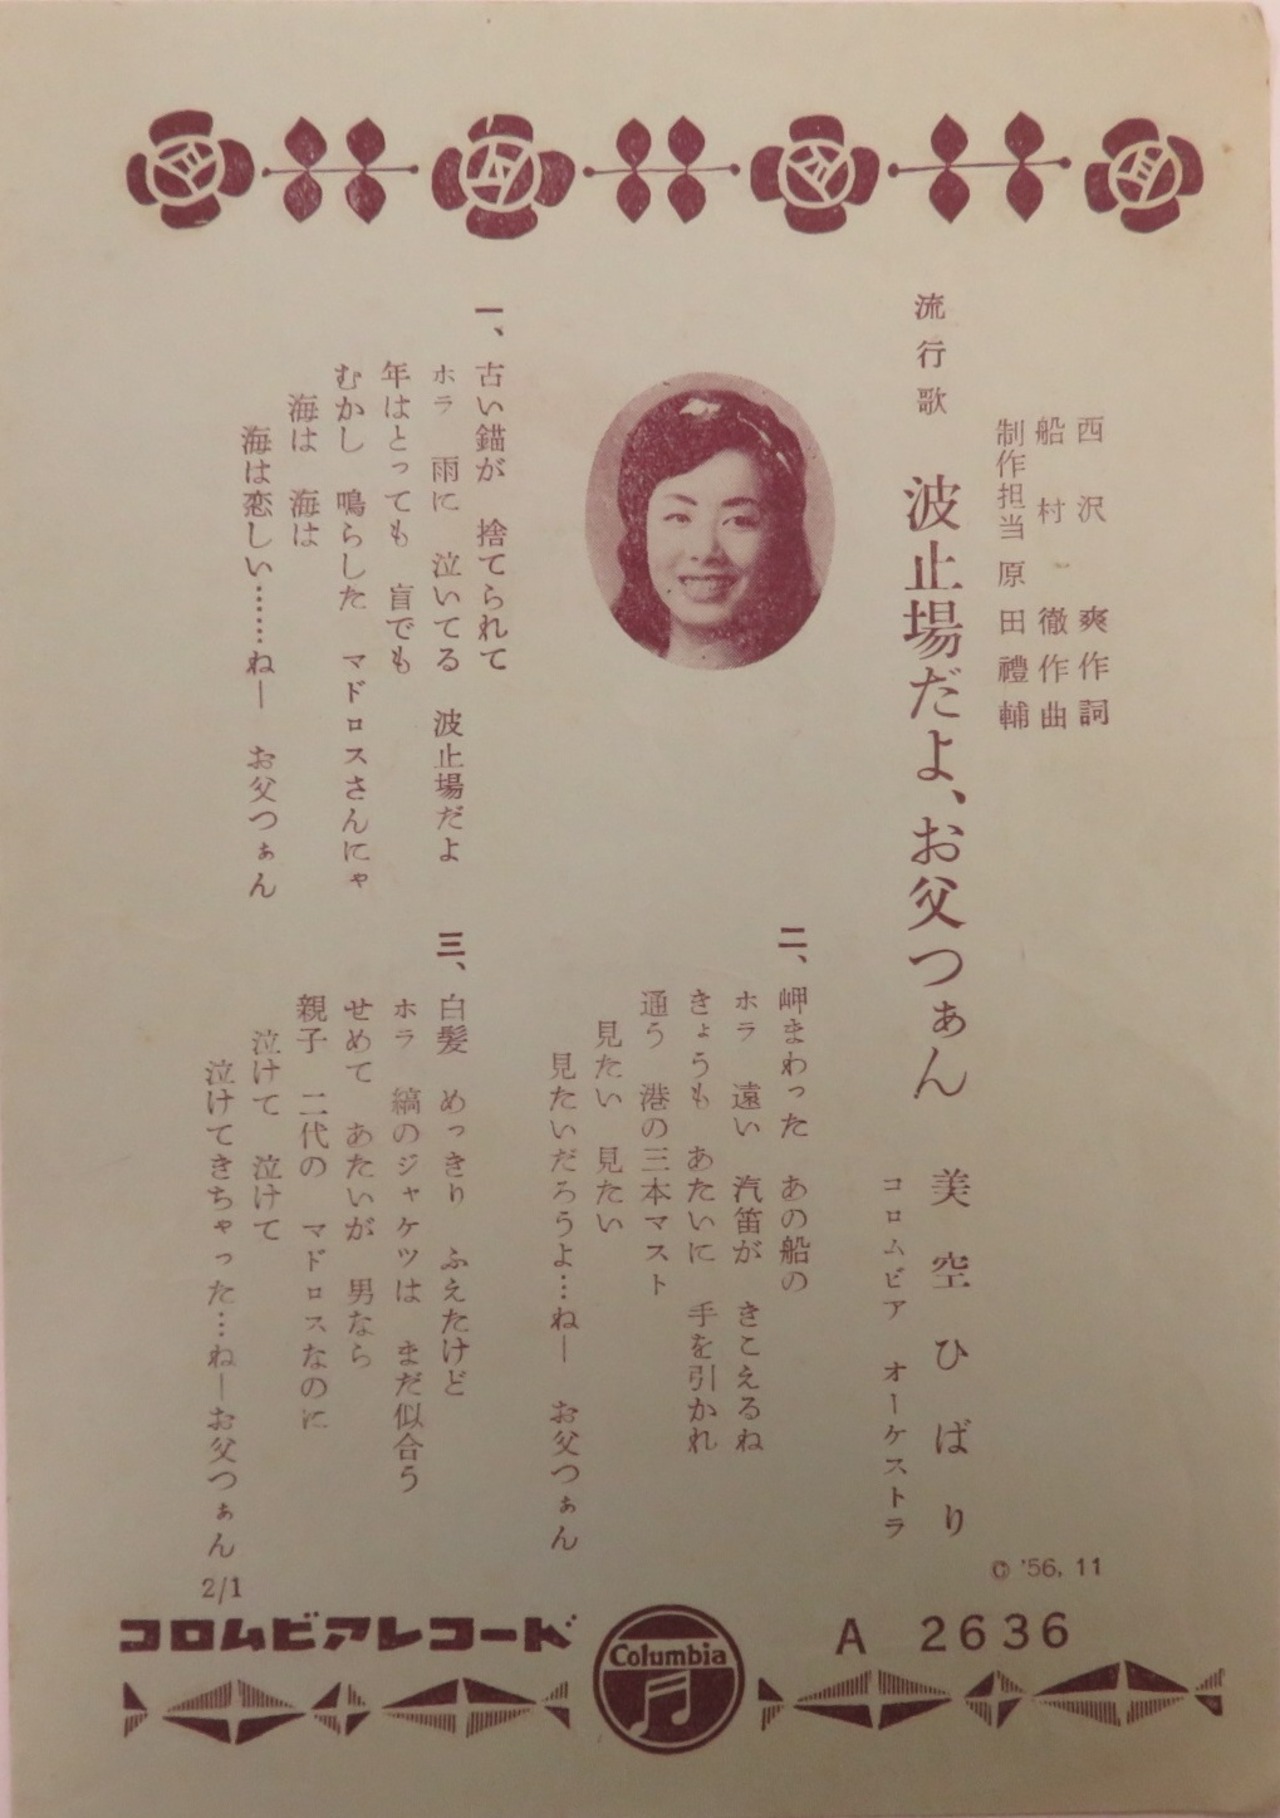 西沢 爽作詞
船村 徹作曲
制作担当 原田禮輔
流行歌 波止場だよ、お父つぁん 美空ひばり
コロムビア オーケストラ
一、古い錨が 捨てられて
ホラ 雨に 泣いてる 波止場だよ
年はとっても 盲でも
むかし 鳴らした マドロスさんにゃ
海は 海は
海は恋しい……ねー お父つぁん
二、岬まわった あの船の
ホラ 遠い 汽笛が きこえるね
きょうも あたいに 手を引かれ
通う 港の三本マスト
見たい 見たい
見たいだろうよ…ねー お父つぁん
三、白髪 めっきり ふえたけど
ホラ 縞のジャケツは まだ似合う
せめて あたいが 男なら
親子 二代の マドロスなのに
泣けて 泣けて
泣けてきちゃった…ねーお父つぁん
© '56, 11
2/1
コロムビアレコード
Columbia
A 2636